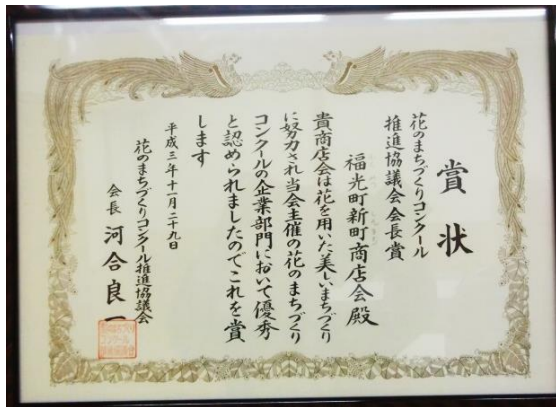 賞状
花のまちづくりコンクール
推進協議会会長賞
福光町新町商店会殿
貴商店会は花を用いた美しいまちづくり
に努力され当会主催の花のまちづくり
コンクールの企業部門において優秀
と認められましたのでこれを賞
します
平成三年十一月二十九日
花のまちづくりコンクール推進協議会
会長 河合良一